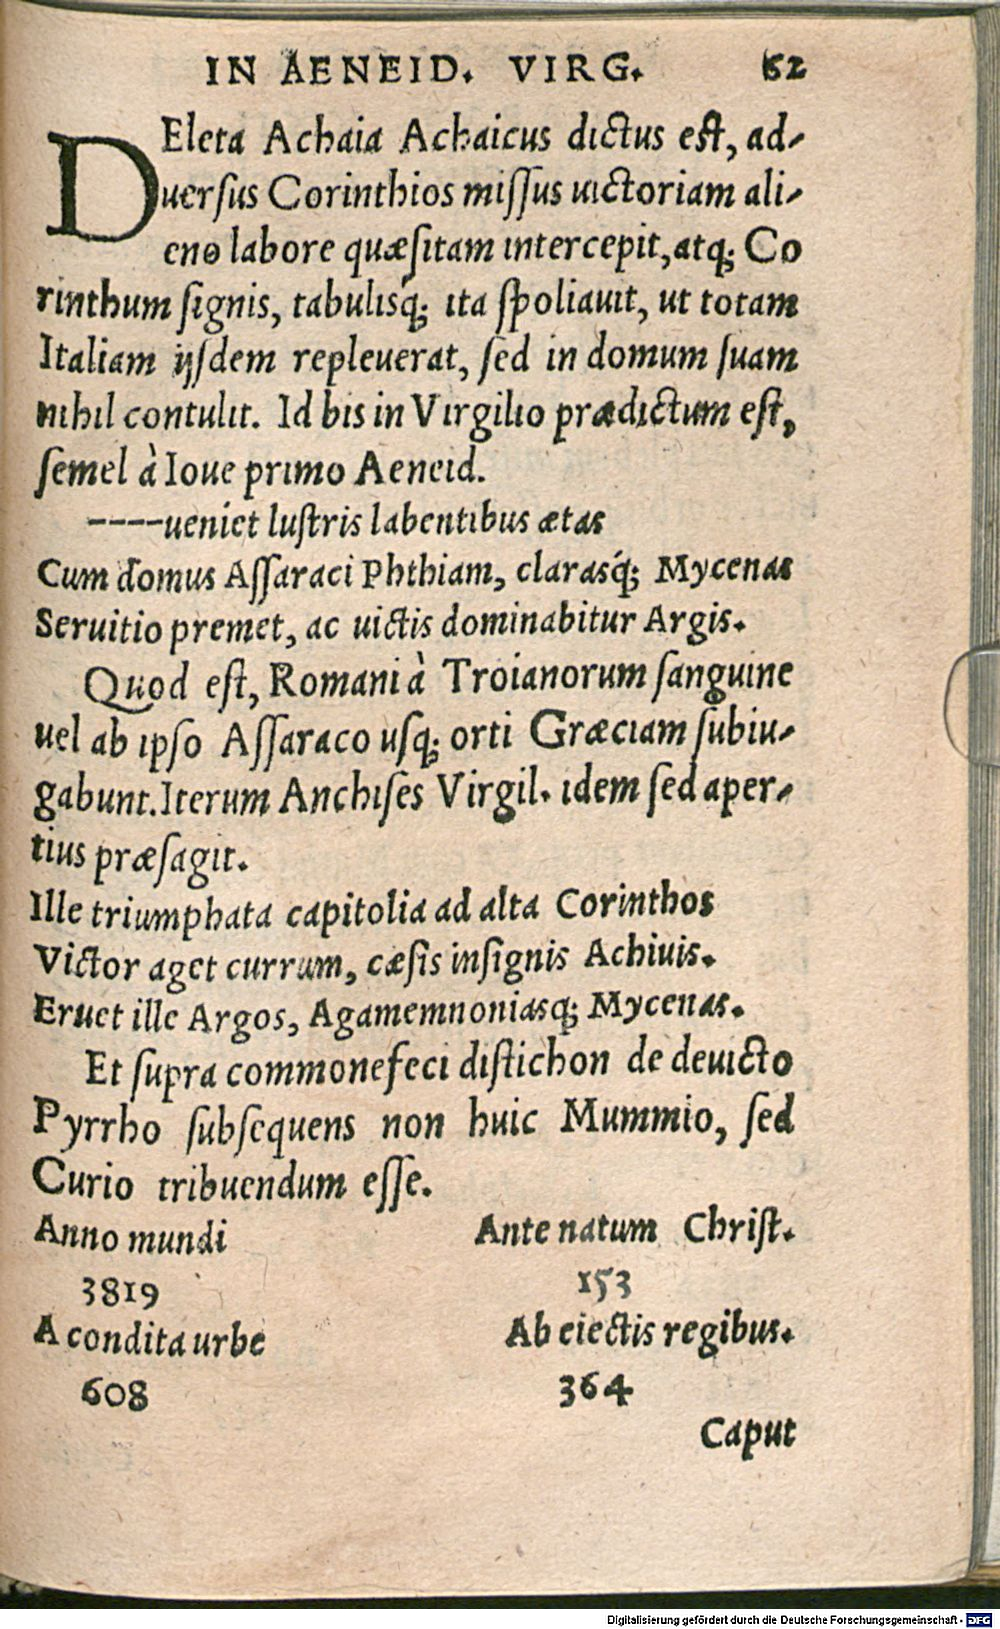 IN AENEID. VIRG. 62
DEleta Achaia Achaicus dictus est, ad-
uersus Corinthios missus uictoriam ali-
eno labore quæsitam intercepit, atq; Co
rinthum signis, tabulisq́; ita spoliauit, ut totam
Italiam ijsdem repleuerat, sed in domum suam
nihil contulit. Id bis in Virgilio prædictum est,
semel à Ioue primo Aeneid.
----ueniet lustris labentibus ætas
Cum domus Assaraci Phthiam, clarasq́; Mycenas
Seruitio premet, ac uictis dominabitur Argis.
Quod est, Romani à Troianorum sanguine
uel ab ipso Assaraco usq; orti Græciam subiu-
gabunt. Iterum Anchises Virgil. idem sed aper-
tius præsagit.
Ille triumphata capitolia ad alta Corinthos
Victor aget currum, cæsis insignis Achiuis.
Eruet ille Argos, Agamemnoniasq; Mycenas.
Et supra commonefeci distichon de deuicto
Pyrrho subsequens non huic Mummio, sed
Curio tribuendum esse.
Anno mundi Ante natum Christ.
3819 153
A condita urbe Ab eiectis regibus.
608 364
Caput
Digitalisierung gefördert durch die Deutsche Forschungsgemeinschaft - DFG